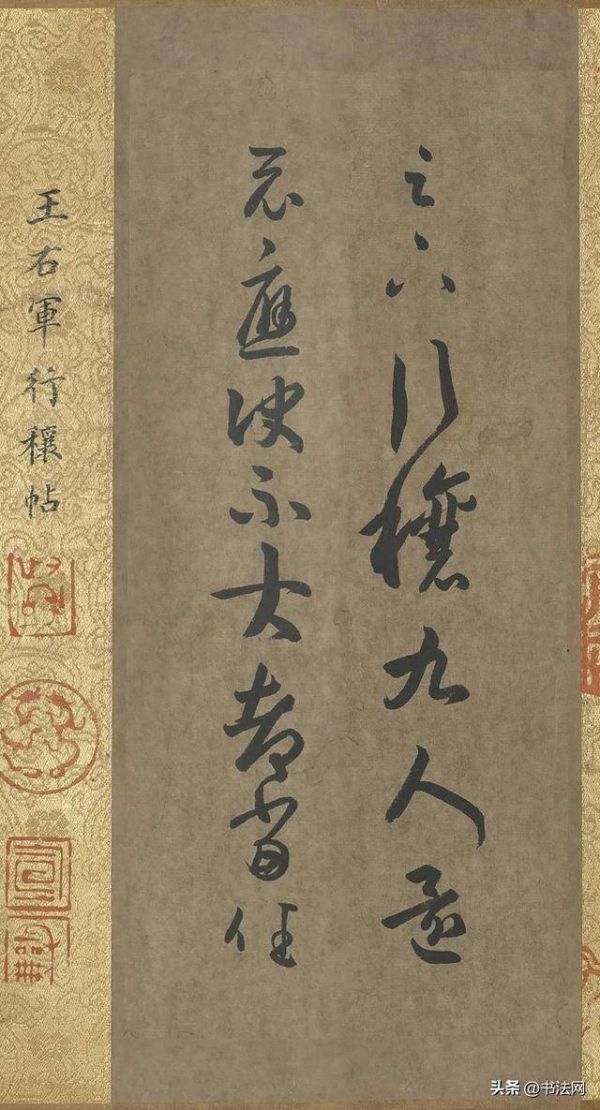 足下行穰九人還
示應決不大都當佳
王右軍行穰帖
头条 @书法网